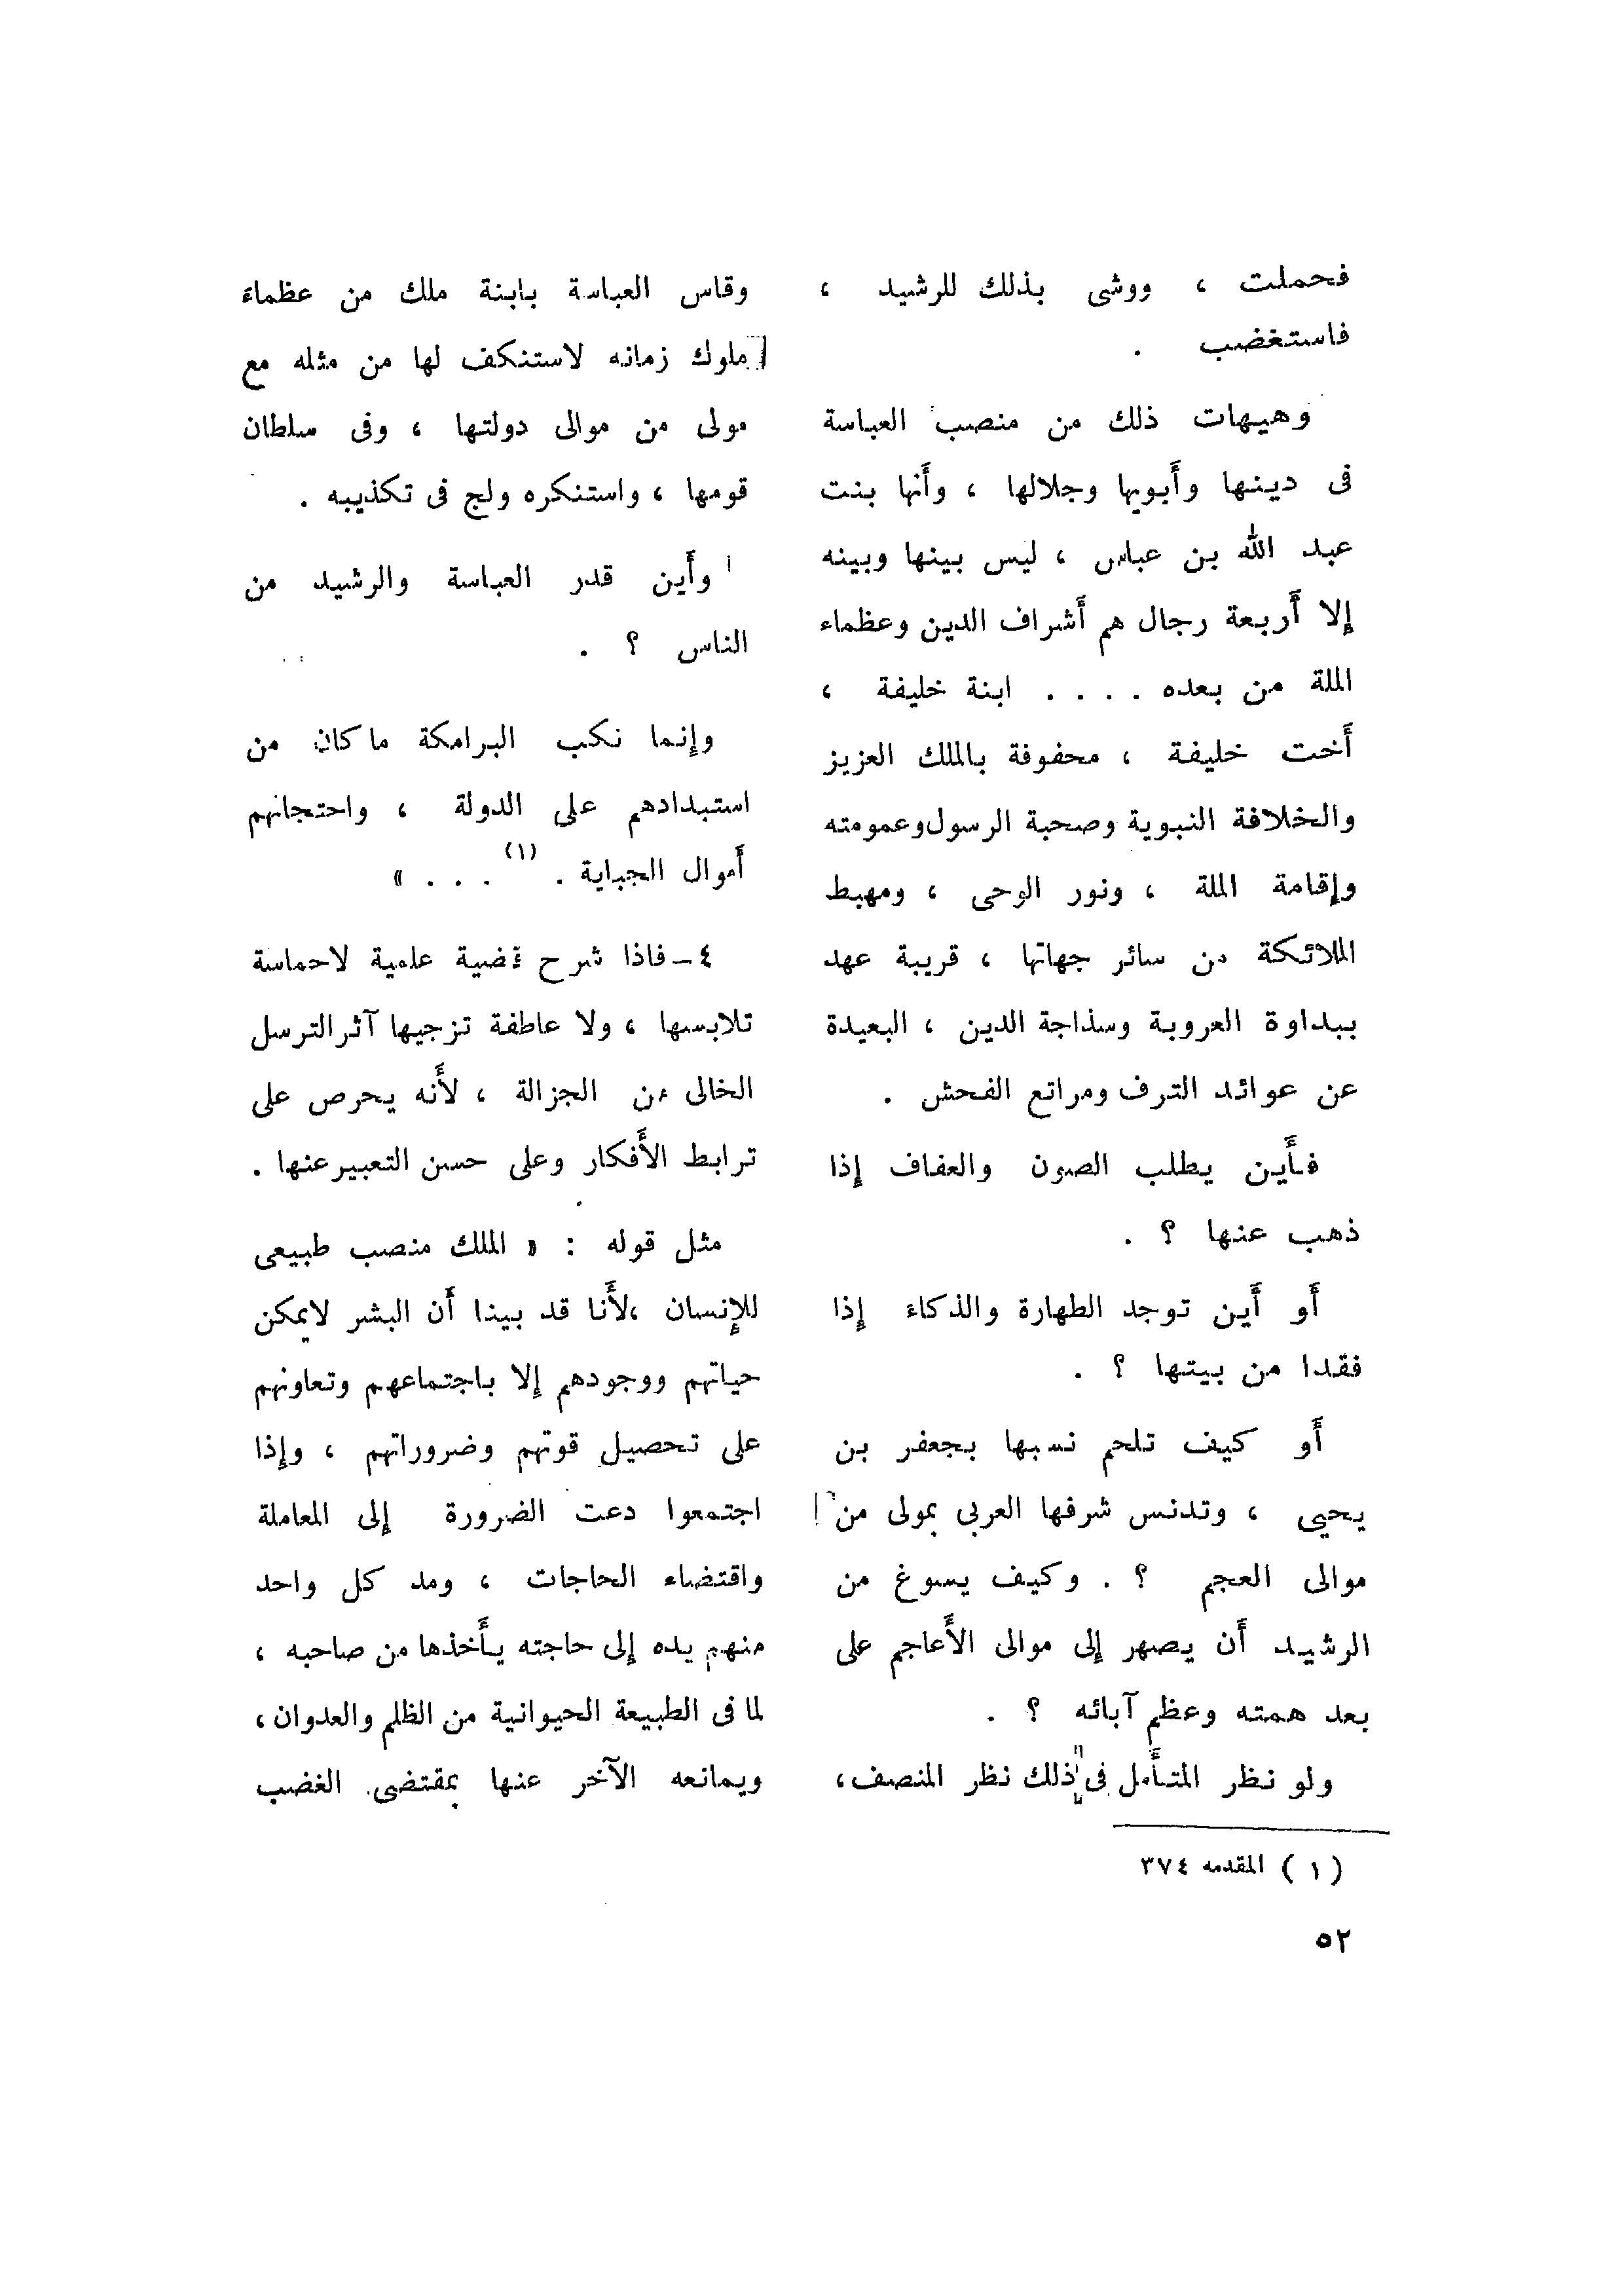 فحملت ، ووشى بذلك للرشيد ،
فاستغضب .
وهيهات ذلك من منصب العباسة
فى دينها وأبويها وجلالها ، وأنها بنت
عبد الله بن عباس ، ليس بينها وبينه
إلا أربعة رجال هم أشراف الدين وعظماء
الملة من بعده . . . . ابنة خليفة ،
أخت خليفة ، محفوفة بالملك العزيز
والخلافة النبوية وصحبة الرسول وعمومته
وإقامة الملة ، ونور الوحى ، ومهبط
الملائكة من سائر جهاتها ، قريبة عهد
ببداوة العروبة وسذاجة الدين ، البعيدة
عن عوائد الترف ومراتع الفحش .
فأين يطلب الصون والعفاف إذا
ذهب عنها ؟ .
أو أين توجد الطهارة والذكاء إذا
فقدا من بيتها ؟ .
أو كيف تلحم نسبها بجعفر بن
يحيى ، وتدنس شرفها العربى بمولى من
موالى العجم ؟ . وكيف يسوغ من
الرشيد أن يصهر إلى موالى الأعاجم على
بعد همته وعظم آبائه ؟ .
ولو نظر المتأمل فى ذلك نظر المنصف،
وقاس العباسة بابنة ملك من عظماء
ملوك زمانه لاستنكف لها من مثله مع
مولى من موالى دولتها ، وفى سلطان
قومها ، واستنكره ولج فى تكذيبه .
وأين قدر العباسة والرشيد من
الناس ؟ .
وإنما نكب البرامكة ما كان من
استبدادهم على الدولة ، واحتجانهم
أموال الجباية . (١) . . . »
٤ – فاذا شرح قضية علمية لاحماسة
تلابسها ، ولا عاطفة تزجيها آثر الترسل
الخالى من الجزالة ، لأنه يحرص على
ترابط الأفكار وعلى حسن التعبير عنها .
مثل قوله : « الملك منصب طبيعى
للإنسان ،لأنا قد بينا أن البشر لايمكن
حياتهم ووجودهم إلا باجتماعهم وتعاونهم
على تحصيل قوتهم وضروراتهم ، وإذا
اجتمعوا دعت الضرورة إلى المعاملة
واقتضاء الحاجات ، ومد كل واحد
منهم يده إلى حاجته يأخذها من صاحبه ،
لما فى الطبيعة الحيوانية من الظلم والعدوان،
ويمانعه الآخر عنها بمقتضى الغضب
(١) المقدمه ٣٧٤
٥٢